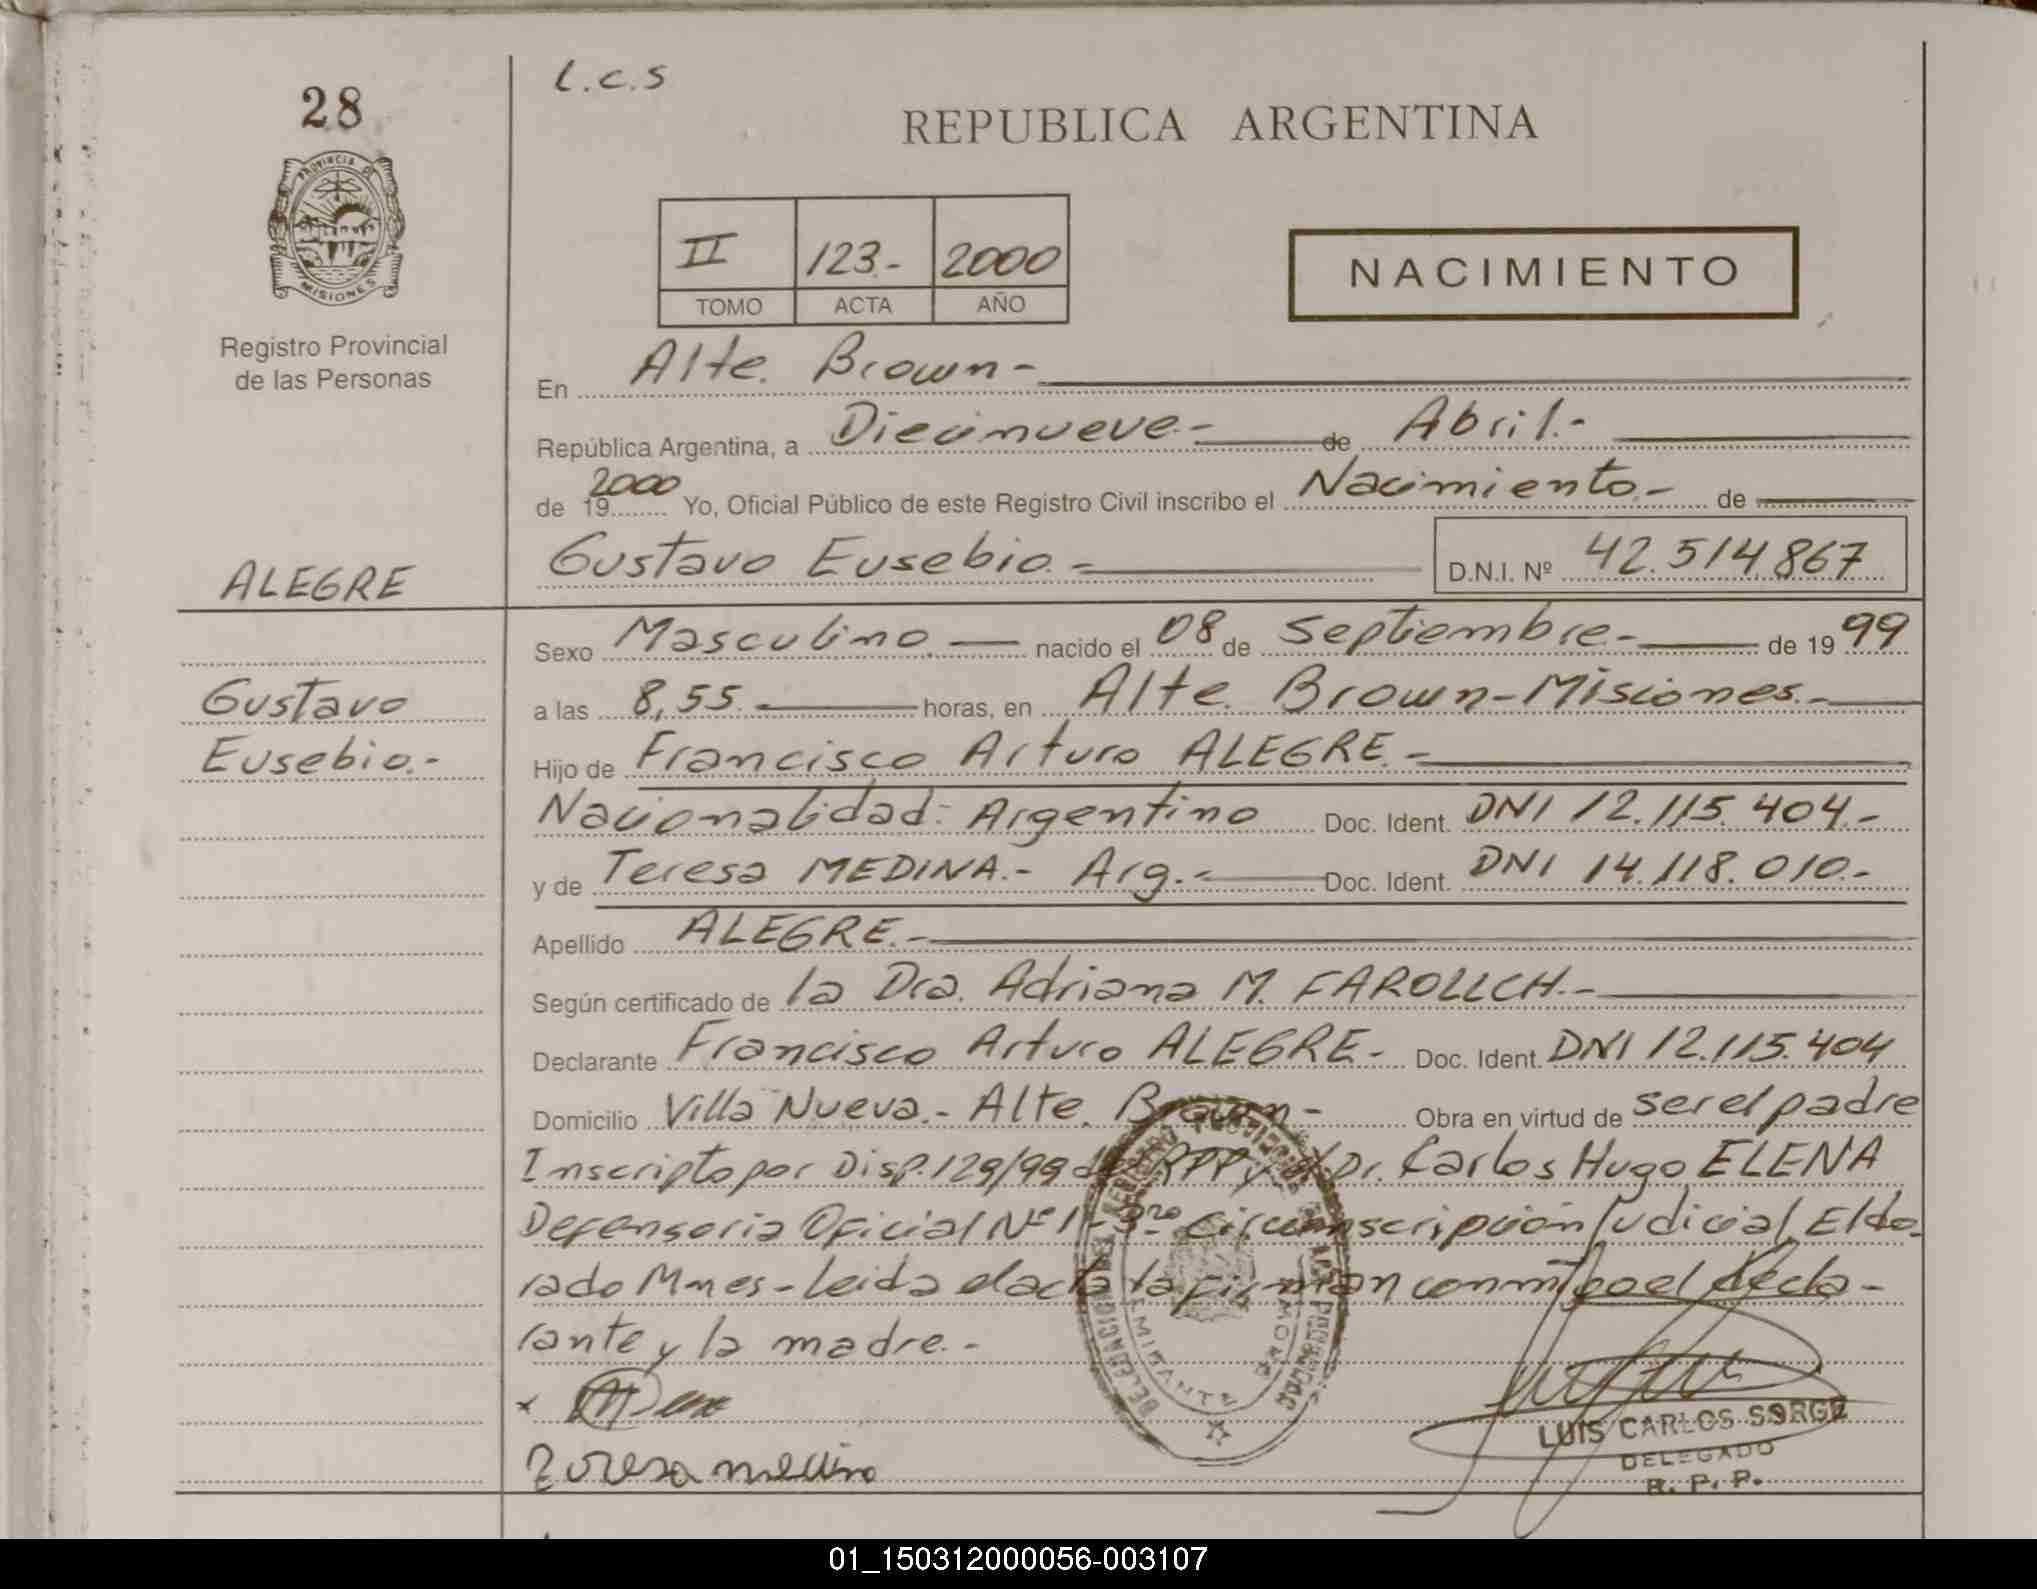 28
L.C.S
REPUBLICA ARGENTINA
PROVINCIA DE
MISIONES
Registro Provincial
de las Personas
II 123.- 2000
TOMO ACTA AÑO
NACIMIENTO
En Alte. Brown-
República Argentina, a Diecinueve.- de Abril.-
de 19 2000 Yo, Oficial Público de este Registro Civil inscribo el Nacimiento.- de
ALEGRE
Gustavo Eusebio.- D.N.I. Nº 42.514.867
Sexo Masculino. nacido el 08 de Septiembre.- de 19 99
Gustavo
a las 8,55. horas, en Alte. Brown-Misiones.-
Eusebio.-
Hijo de Francisco Arturo ALEGRE.-
Nacionalidad: Argentino Doc. Ident. DNI 12.115.404.-
y de Teresa MEDINA.- Arg.- Doc. Ident. DNI 14.118.010.-
Apellido ALEGRE.-
Según certificado de la Dra. Adriana M. FAROLLCH.-
Declarante Francisco Arturo ALEGRE.- Doc. Ident. DNI 12.115.404
Domicilio Villa Nueva.- Alte. Brown- Obra en virtud de ser el padre
Inscripto por Disp. 129/99 del RPP y Dr. Carlos Hugo ELENA
Defensoria Oficial Nº 1- 3ra Circunscripción Judicial, Eldo-
rado Mnes- Leida el acta la firman conmigo el decla-
rante y la madre.-
x
Teresa medina
LUIS CARLOS SORGE
DELEGADO
R. P. P.
01_150312000056-003107